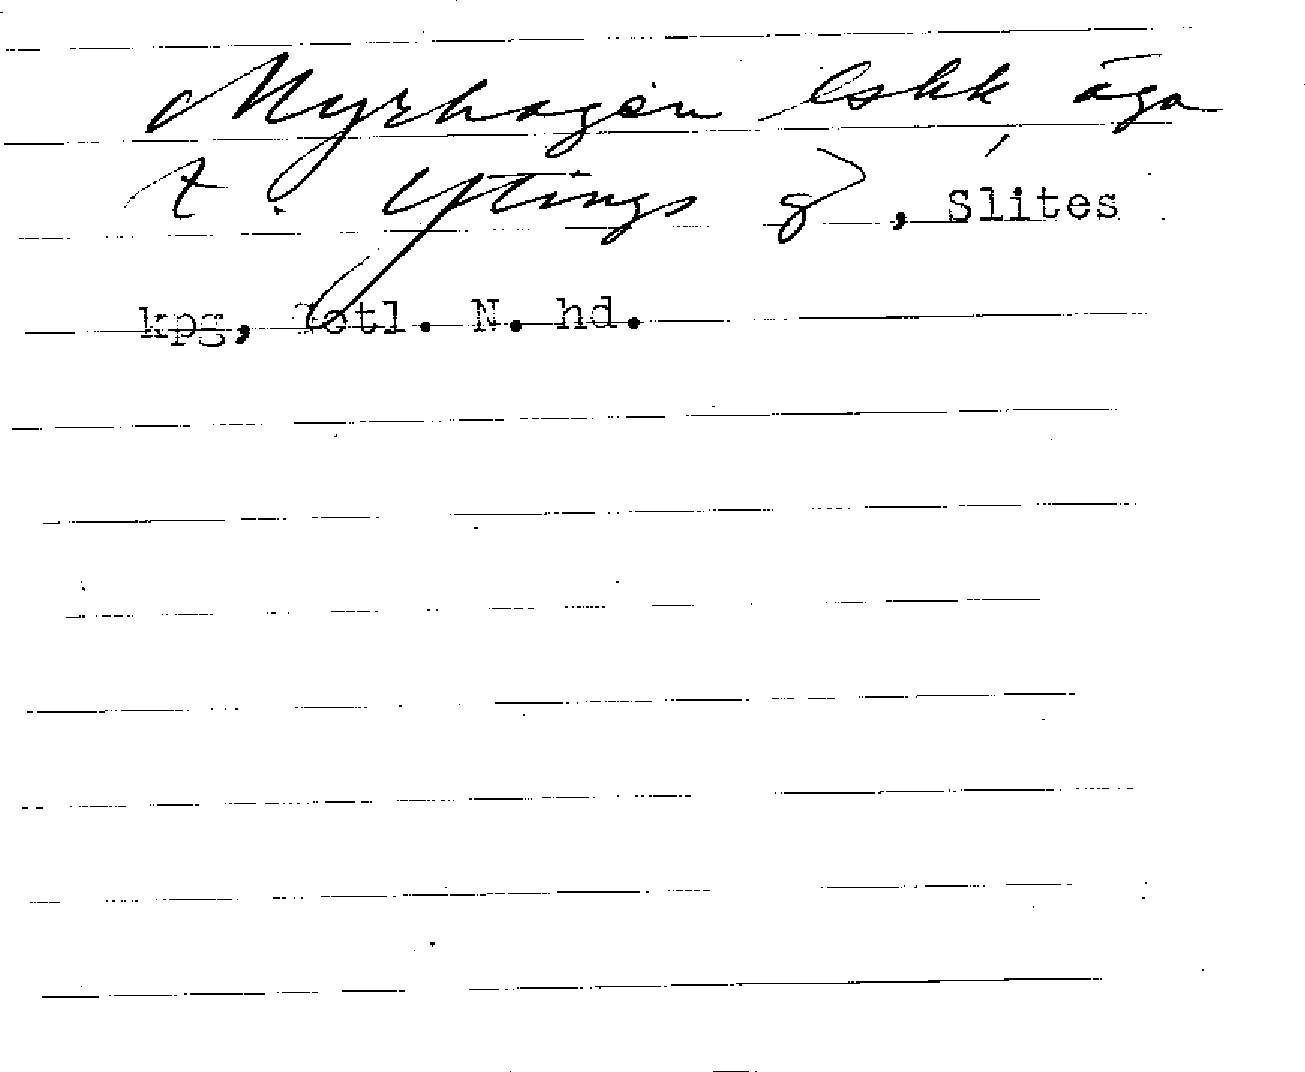 Myrhagen lskk äga
t. Ytings g, Slites
kps, Gotl. N. hd.